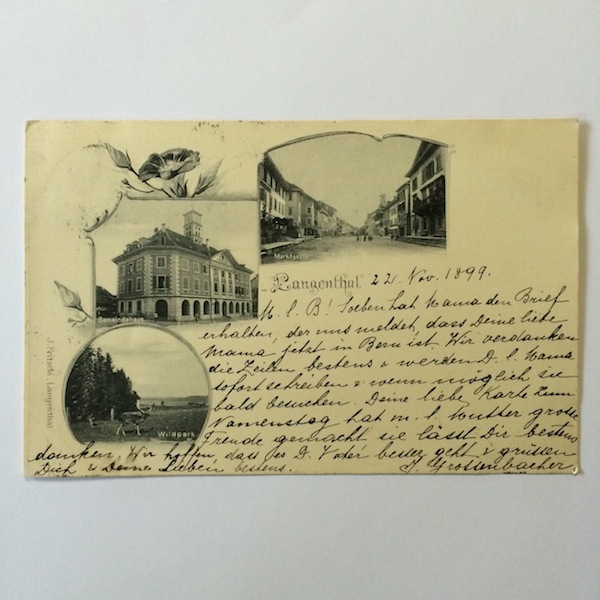 Marktgasse
Langenthal 22. Nov. 1899.
Gemeindehaus
Wildpark
J. Fritschi Langenthal
M. l. B! Soeben hat Mama den Brief
erhalten, der uns meldet, dass Deine liebe
Mama jetzt in Bern ist. Wir verdanken
die Zeilen bestens & werden D. l. Mama
sofort schreiben & wenn möglich sie
bald besuchen. Deine liebe Karte zum
Namenstag hat m. l. Mutter grosse
Freude gemacht sie lässt Dir bestens
danken, Wir hoffen, dass es D. Vater besser geht & grüssen
Dich & Deine Lieben bestens. J. Grossenbacher